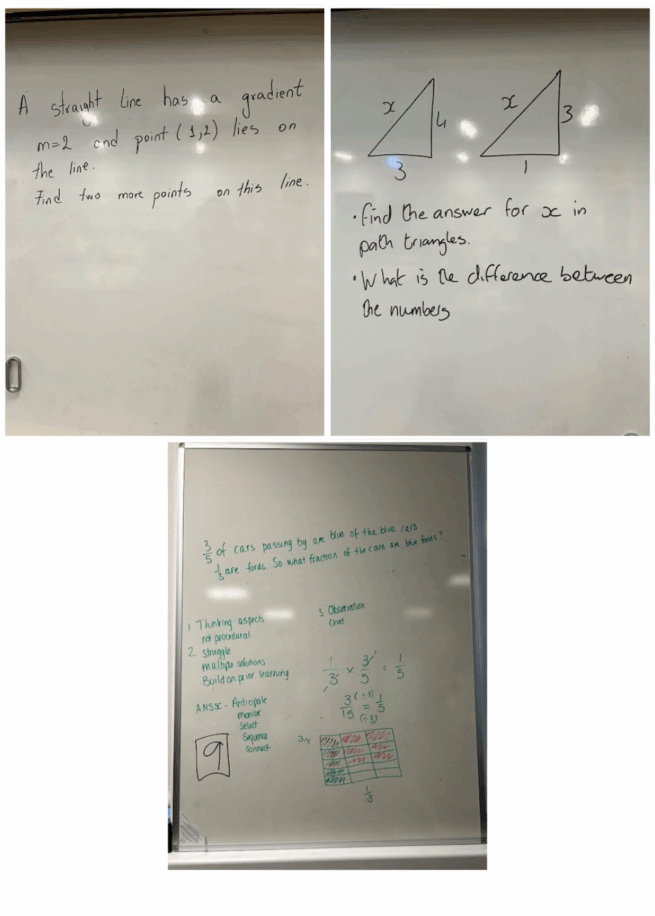 A straight line has a gradient
m=2 and point (1,2) lies on
the line.
Find two more points on this line.
x
4
3
x
3
1
• Find the answer for x in
path triangles.
• What is the difference between
the numbers
3/5 of cars passing by are blue of the blue cars
1/3 are fords. So what fraction of the cars are blue fords?
1 Thinking aspects
not procedural
2. Struggle
multiple solutions
Build on prior learning
ANSSC - Anticipate
monitor
Select
Sequence
connect
9
3 Observation
Chat
1/3 × 3/5 = 1/5
3/15 = 1/5
(÷3)
(÷3)
1/3